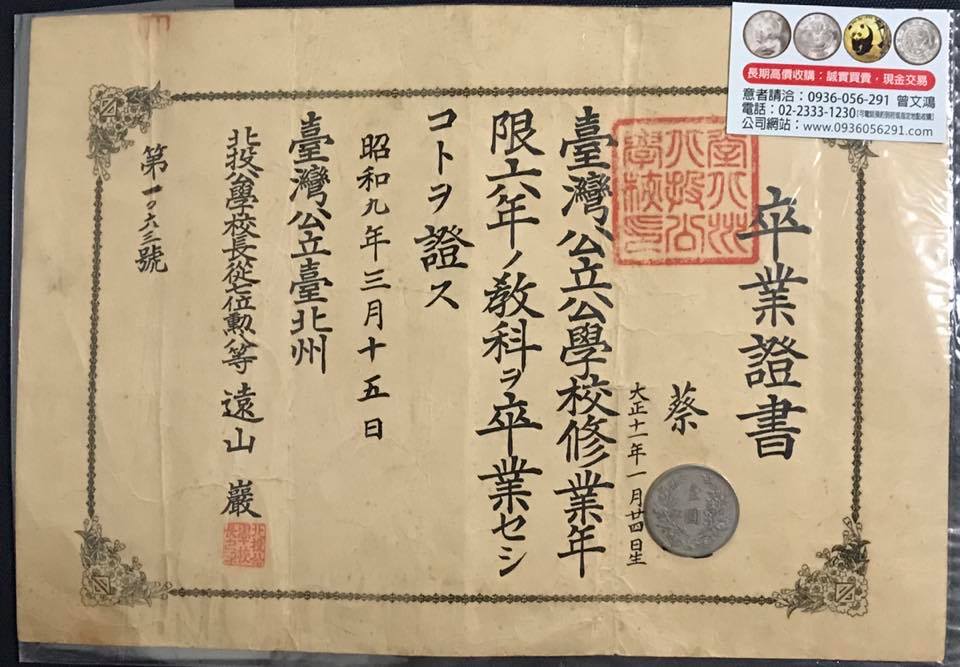 長期高價收購：誠實買賣，現金交易
意者請洽：0936-056-291 曾文鴻
電話：02-2333-1230
公司網站：www.0936056291.com
卒業證書
臺北州
北投公
學校印
蔡
大正十一年一月廿四日生
壹圓
臺灣公立公學校修業年
限六年ノ教科ヲ卒業セシ
コトヲ證ス
昭和九年三月十五日
臺灣公立臺北州
北投公學校長從七位勳八等 遠山 巖
第一〇六三號